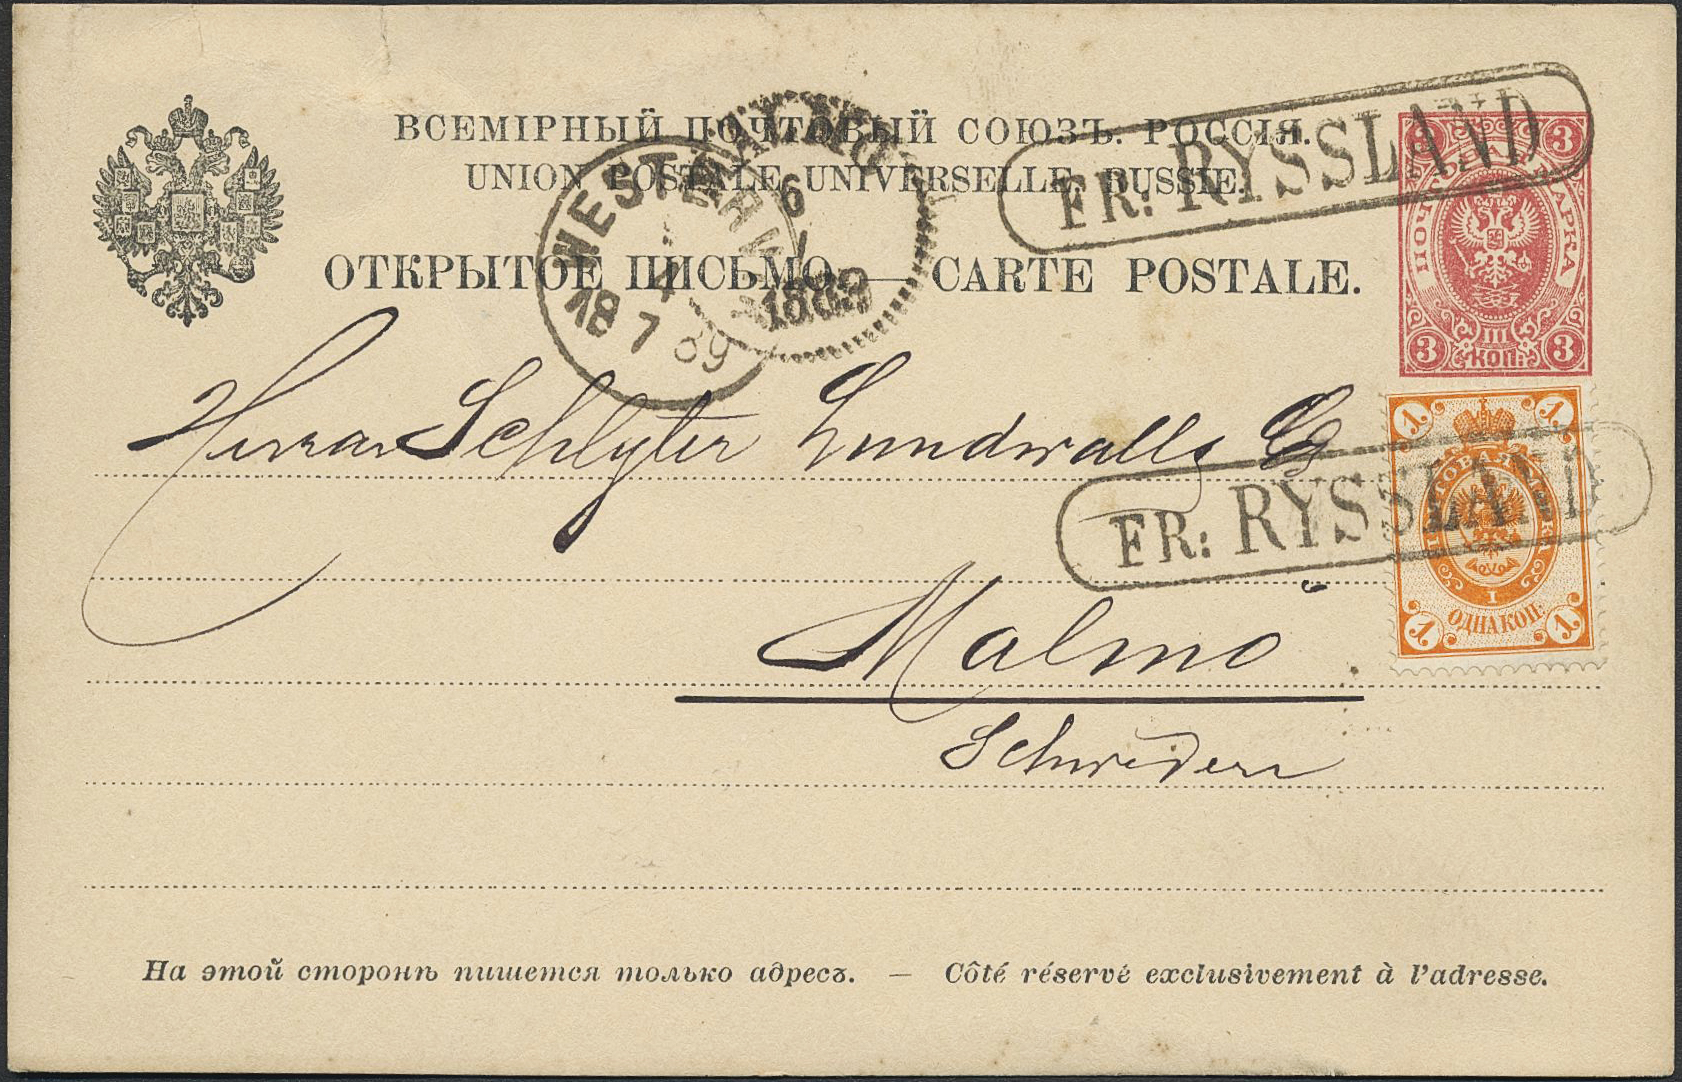 ВСЕМІРНЫЙ ПОЧТОВЫЙ СОЮЗЪ. РОССІЯ.
UNION POSTALE UNIVERSELLE. RUSSIE.
ОТКРЫТОЕ ПИСЬМО. — CARTE POSTALE.
FR: RYSSLAND
ПОЧТОВАЯ МАРКА
3 3
III
3 КОП: 3
WESTERWIK
18 7 89
6
1889
Herrar Schlyter Lundwalls Co
FR: RYSSLAND
1 1
ПОЧТОВАЯ МАРКА
I
ОДНА КОП:
1 1
Malmö
Schweden
На этой сторонѣ пишется только адресъ. — Côté réservé exclusivement à l'adresse.